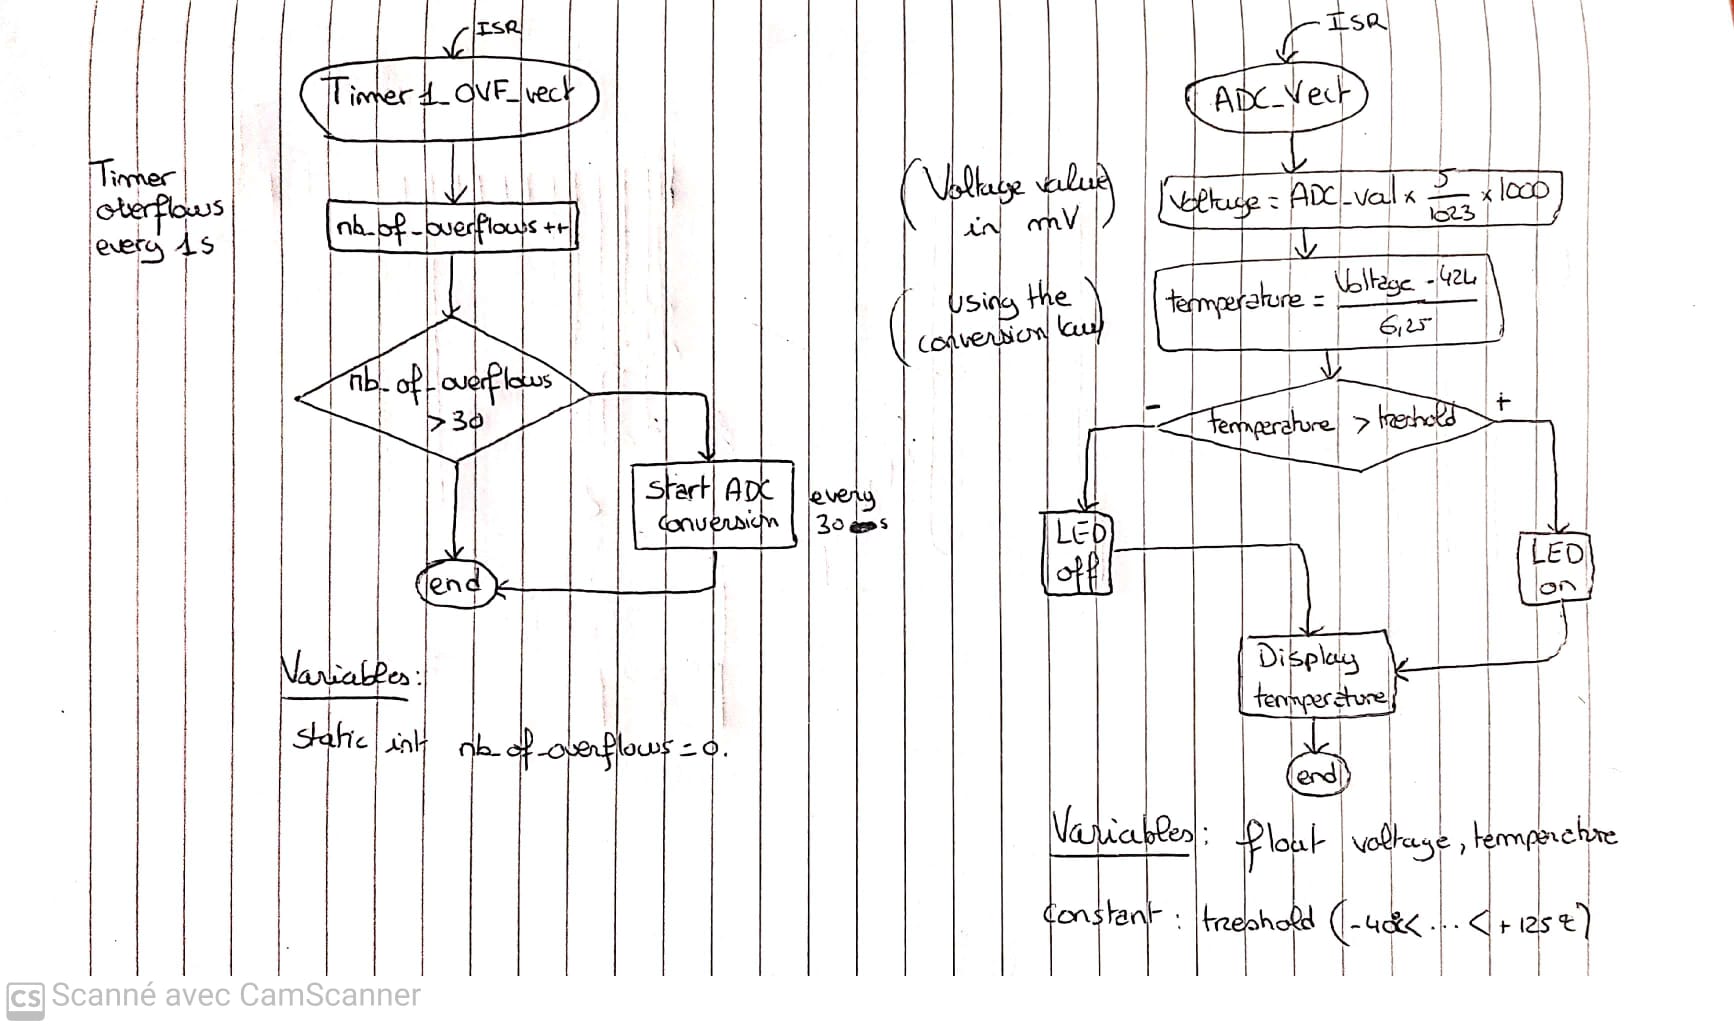 ISR
Timer 1_OVF_vect
Timer
overflows
every 1s
nb_of_overflows ++
nb_of_overflows
>30
Start ADC
conversion
every
30 s
end
Variables:
static int nb_of_overflows = 0.
ISR
ADC_Vect
(Voltage value
in mV)
Voltage = ADC_val x 5/1023 x 1000
(using the
conversion law)
temperature = Voltage - 424 / 6,25
temperature > treshold
-
+
LED
off
LED
on
Display
temperature
end
Variables: float voltage, temperature
Constant: treshold (-40°C < ... < +125°C)
CS Scanné avec CamScanner